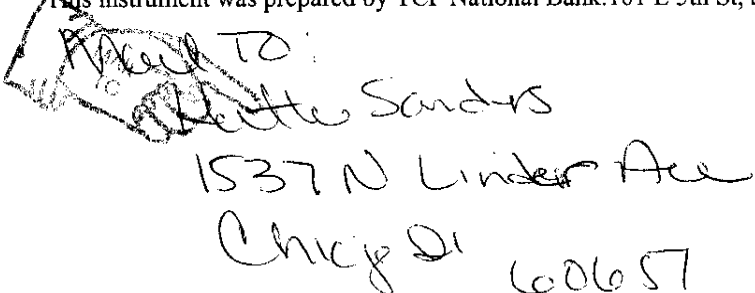 This instrument was prepared by TCF National Bank.101 E 5th St,
Mail To:
Sanders
1537 N Linder Ave
Chicgo Il 60651